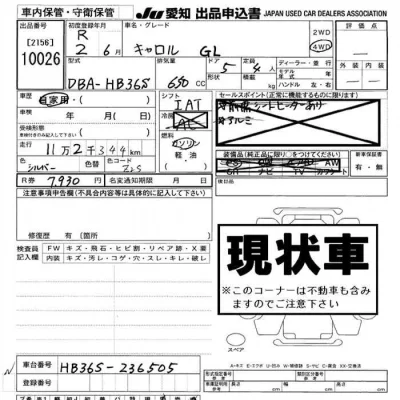 車内保管・守衛保管
JU 愛知 出品申込書 JAPAN USED CAR DEALERS ASSOCIATION
出品番号
[2156]
10026
初度登録年月
R 2年 6月
車名・グレード
キャロル GL
2WD
4WD
外装
内装
型式
DBA-HB36S
排気量
650 cc
ドア
5
定員
4人
ディーラー・並行
モデル年式
ハンドル 左・右
車歴
自家用
シフト
IAT
セールスポイント(正常に機能する物に限ります)
シートヒーターあり
アルミ
車検
年 月(日)
冷房
AC
受検形態
燃料
ガソリン
軽油
走行
11万2千344km
色
シルバー
色替
色コード
Z2S
装備品(純正品に限り)をつけてください
AW
ナビ TV
新車保証書
有・無
R券 7,930円
名変通知期限 月 日
検印
注意事項申告欄(不具合内容等は具体的に記入して下さい)
修復歴 有(箇所
検査員記入欄
FW キズ・飛石・ヒビ割・リペア跡・X要
内装 キズ・汚レ・コゲ・穴・スレ・キレ・破レ
現状車
※このコーナーは不動車も含みますのでご注意下さい
スペア
車台番号 HB36S-236505
登録番号
型式指定番号
類別区分番号
長さ
幅
高さ